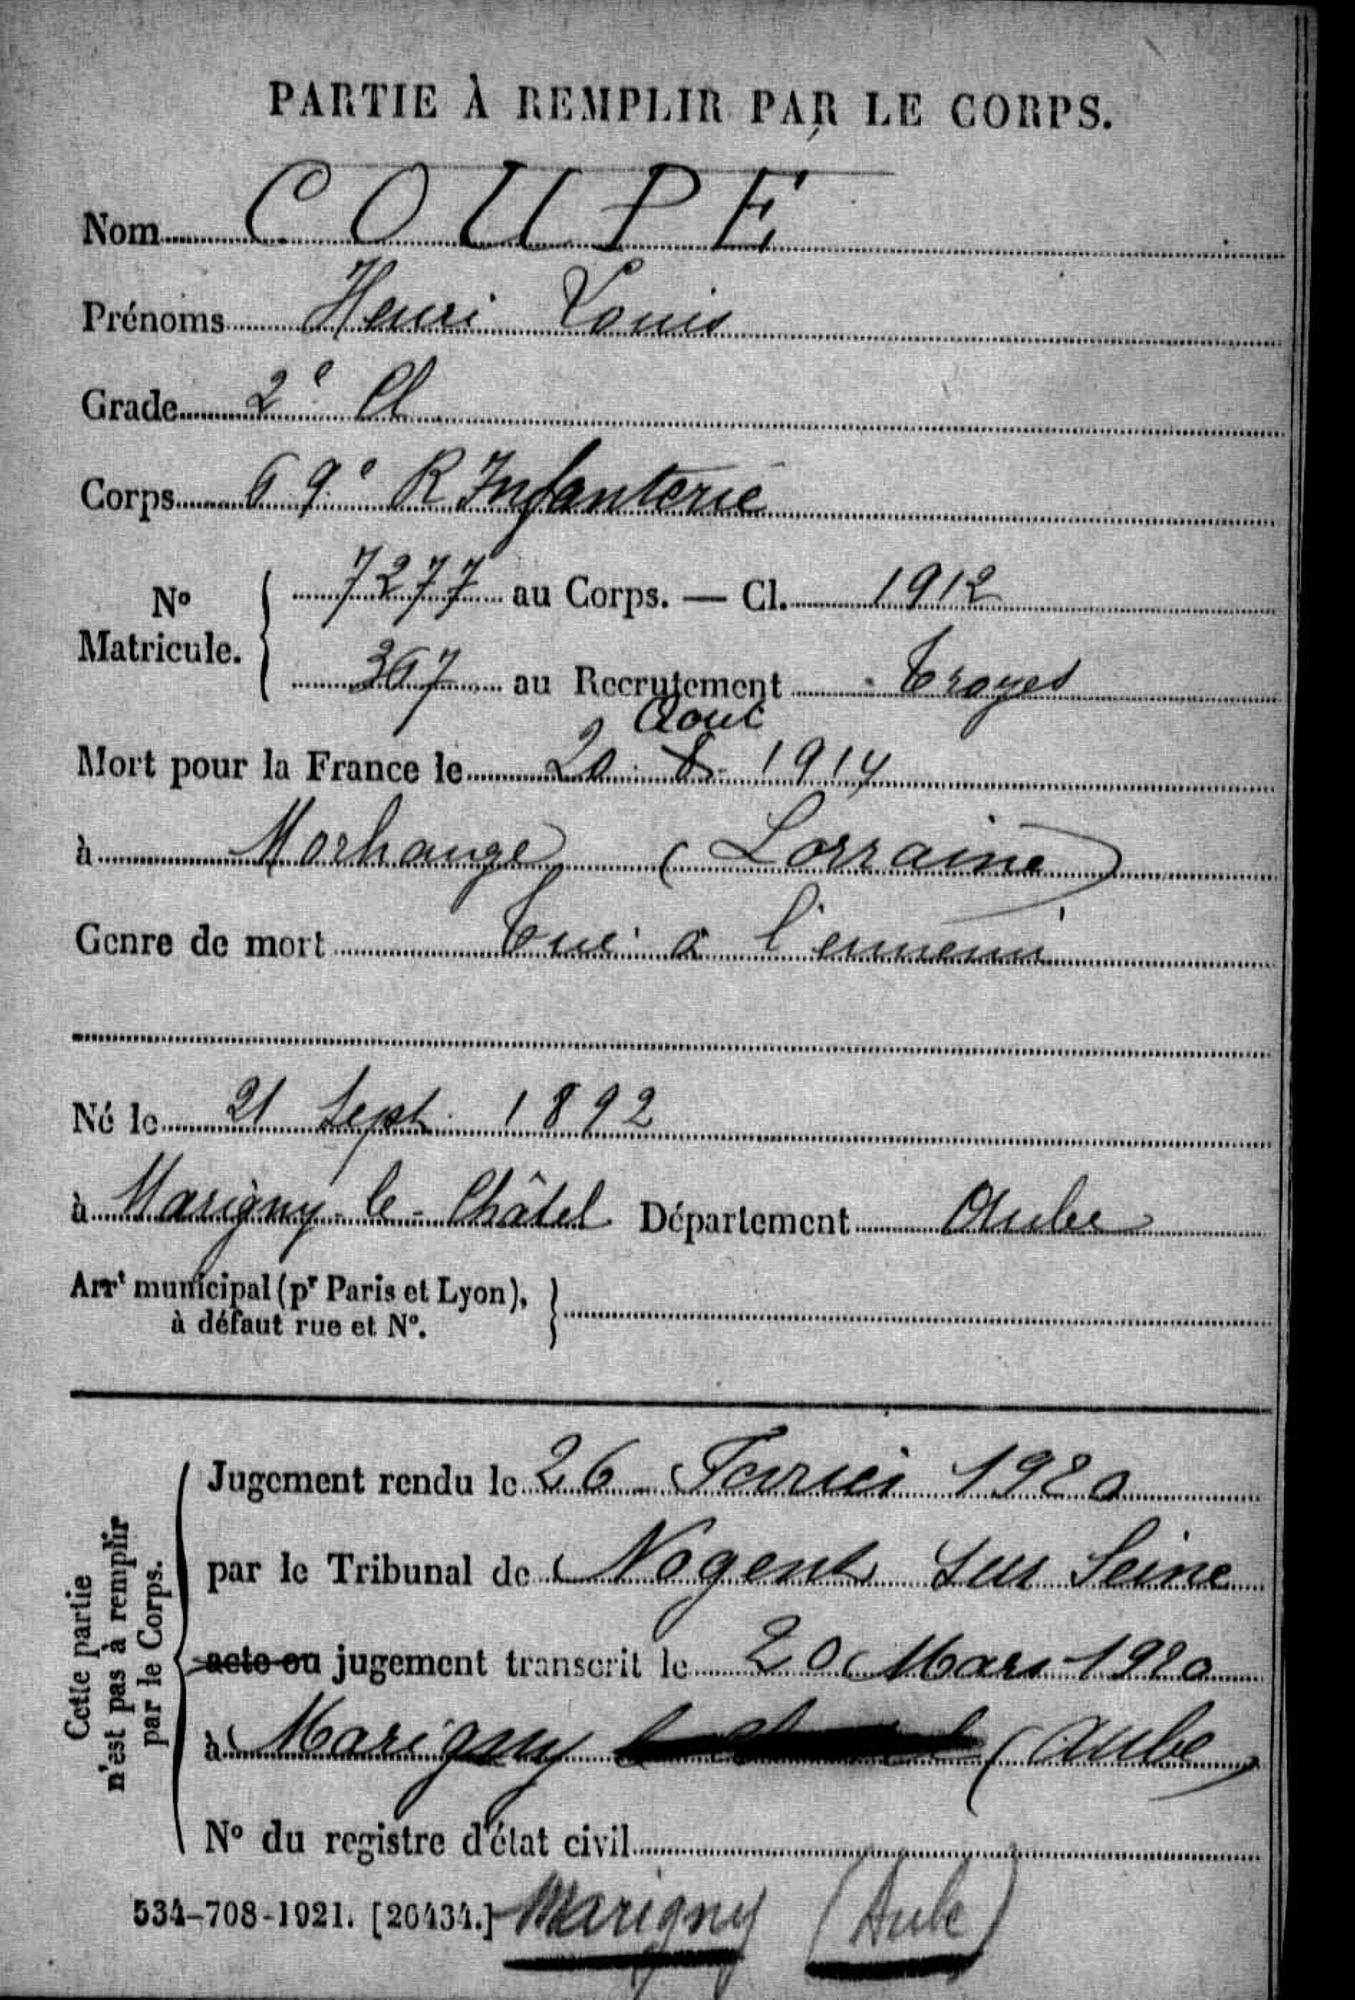 PARTIE À REMPLIR PAR LE CORPS.
Nom COUPE
Prénoms Henri Louis
Grade 2e Cl
Corps 69e R Infanterie
No Matricule. { 7277 au Corps. — Cl. 1912
367 au Recrutement Troyes
Aout
Mort pour la France le 20 8 1914
à Morhange (Lorraine)
Genre de mort Tué à l'ennemi
Né le 21 Sept. 1892
à Marigny-le-Châtel Département Aube
Arrt municipal (pr Paris et Lyon), }
à défaut rue et No.
Cette partie
n'est pas à remplir
par le Corps.
Jugement rendu le 26 Fevrier 1920
par le Tribunal de Nogent sur Seine
acte ou jugement transcrit le 20 Mars 1920
à Marigny (Aube)
No du registre d'état civil
534-708-1921. [26434.] Marigny (Aube)